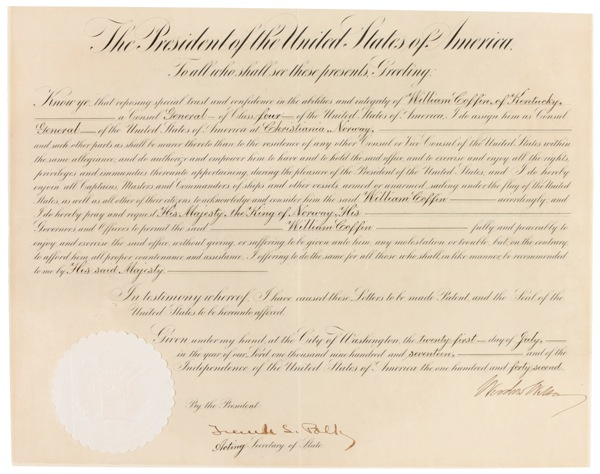 The President of the United States of America.
To all who shall see these presents, Greeting:
Know ye, that reposing special trust and confidence in the abilities and integrity of William Coffin, of Kentucky,
a Consul General of Class four of the United States of America, I do assign him as Consul
General of the United States of America at Christiania, Norway,
and such other parts as shall be nearer thereto than to the residence of any other Consul or Vice Consul of the United States within
the same allegiance; and do authorize and empower him to have and to hold the said office and to exercise and enjoy all the rights,
privileges and immunities thereunto appertaining, during the pleasure of the President of the United States, and I do hereby
enjoin all Captains, Masters and Commanders of ships and other vessels, armed or unarmed, sailing under the flag of the United
States, as well as all other of their citizens, to acknowledge and consider him the said William Coffin accordingly, and
I do hereby pray and request His Majesty, the King of Norway, His
Governors and Officers to permit the said William Coffin fully and peaceably to
enjoy and exercise the said office, without giving, or suffering to be given unto him, any molestation or trouble, but on the contrary,
to afford him all proper countenance and assistance. I offering to do the same for all those who shall in like manner, be recommended
to me by His said Majesty.
In testimony whereof, I have caused these Letters to be made Patent, and the Seal of the
United States to be hereunto affixed.
Given under my hand, at the City of Washington, the twenty-first day of July,
in the year of our Lord one thousand nine hundred and seventeen, and of the
Independence of the United States of America the one hundred and forty-second.
Woodrow Wilson
By the President:
Frank L. Polk
Acting Secretary of State.